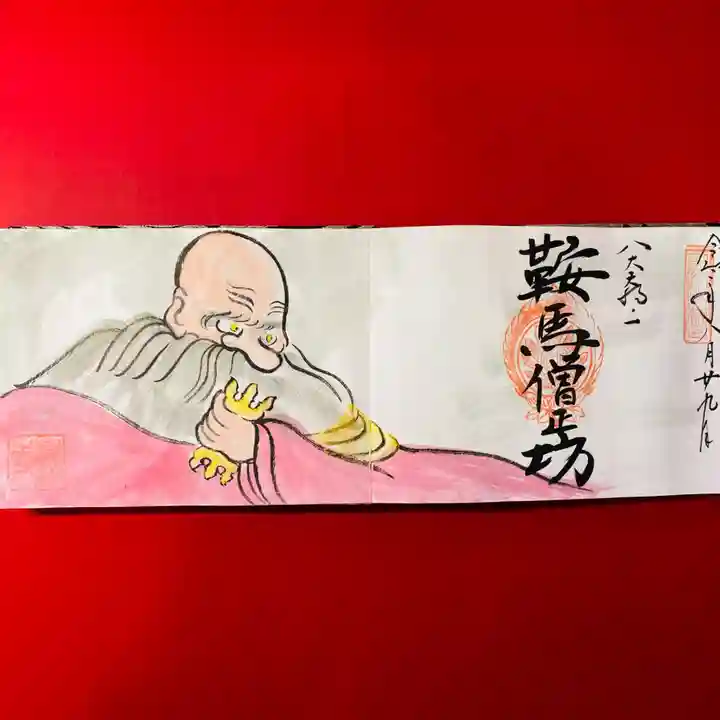 令二年 月廿九日
八大天狗 一
鞍馬僧正坊